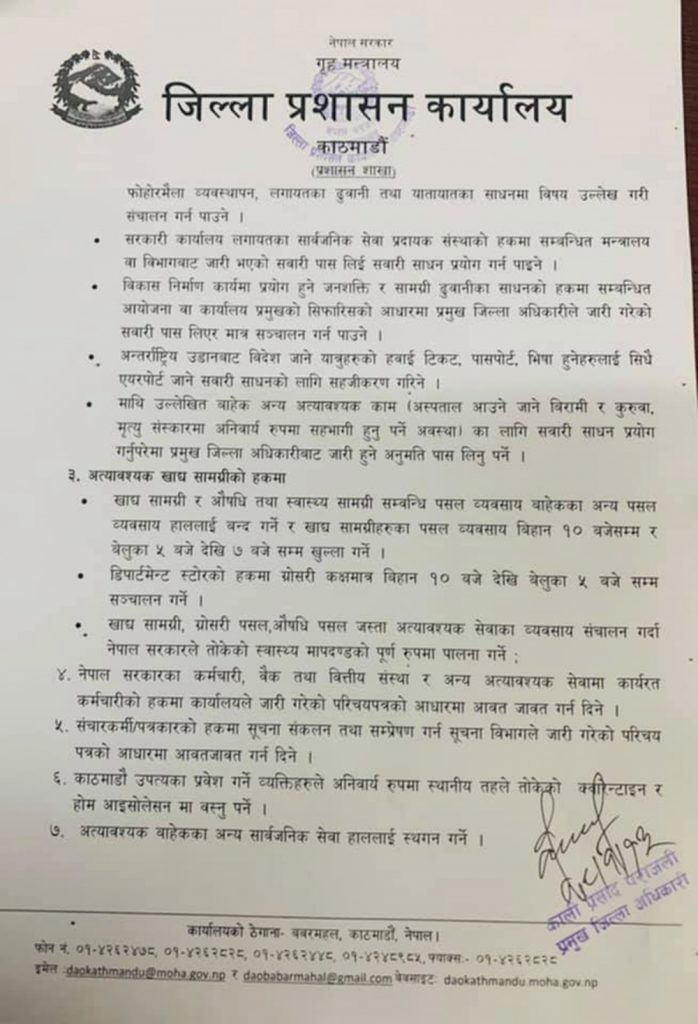 नेपाल सरकार
गृह मन्त्रालय
जिल्ला प्रशासन कार्यालय
काठमाडौं
(प्रशासन शाखा)
फोहोरमैला व्यवस्थापन, लगायतका ढुवानी तथा यातायातका साधनमा विषय उल्लेख गरी
संचालन गर्न पाउने ।
• सरकारी कार्यालय लगायतका सार्वजनिक सेवा प्रदायक संस्थाको हकमा सम्बन्धित मन्त्रालय
वा विभागबाट जारी भएको सवारी पास लिई सवारी साधन प्रयोग गर्न पाइने ।
• विकास निर्माण कार्यमा प्रयोग हुने जनशक्ति र सामग्री ढुवानीका साधनको हकमा सम्बन्धित
आयोजना वा कार्यालय प्रमुखको सिफारिसको आधारमा प्रमुख जिल्ला अधिकारीले जारी गरेको
सवारी पास लिएर मात्र सञ्चालन गर्न पाउने ।
• अन्तर्राष्ट्रिय उडानबाट विदेश जाने यात्रुहरुको हवाई टिकट, पासपोर्ट, भिषा हुनेहरुलाई सिधै
एयरपोर्ट जाने सवारी साधनको लागि सहजीकरण गरिने ।
• माथि उल्लेखित बाहेक अन्य अत्यावश्यक काम (अस्पताल आउने जाने विरामी र कुरुवा,
मृत्यु संस्कारमा अनिवार्य रुपमा सहभागी हुनु पर्ने अवस्था) का लागि सवारी साधन प्रयोग
गर्नुपरेमा प्रमुख जिल्ला अधिकारीबाट जारी हुने अनुमति पास लिनु पर्ने ।
३. अत्यावश्यक खाद्य सामग्रीको हकमा
• खाद्य सामग्री र औषधि तथा स्वास्थ्य सामग्री सम्बन्धि पसल व्यवसाय बाहेकका अन्य पसल
व्यवसाय हाललाई बन्द गर्ने र खाद्य सामग्रीहरुका पसल व्यवसाय बिहान १० बजेसम्म र
बेलुका ५ बजे देखि ७ बजे सम्म खुल्ला गर्ने ।
• डिपार्टमेन्ट स्टोरको हकमा ग्रोसरी कक्षमात्र बिहान १० बजे देखि बेलुका ५ बजे सम्म
सञ्चालन गर्ने ।
• खाद्य सामग्री, ग्रोसरी पसल,औषधि पसल जस्ता अत्यावश्यक सेवाका व्यवसाय संचालन गर्दा
नेपाल सरकारले तोकेको स्वास्थ्य मापदण्डको पूर्ण रुपमा पालना गर्ने ;
४. नेपाल सरकारका कर्मचारी, बैंक तथा वित्तीय संस्था र अन्य अत्यावश्यक सेवामा कार्यरत
कर्मचारीको हकमा कार्यालयले जारी गरेको परिचयपत्रको आधारमा आवत जावत गर्न दिने ।
५. संचारकर्मी/पत्रकारको हकमा सूचना संकलन तथा सम्प्रेषण गर्न सूचना विभागले जारी गरेको परिचय
पत्रको आधारमा आवतजावत गर्न दिने ।
६. काठमाडौं उपत्यका प्रवेश गर्ने व्यक्तिहरुले अनिवार्य रुपमा स्थानीय तहले तोकेको क्वारेन्टाइन र
होम आइसोलेसन मा वस्नु पर्ने ।
७. अत्यावश्यक बाहेकका अन्य सार्वजनिक सेवा हाललाई स्थगन गर्ने ।
काली प्रसाद पराजली
प्रमुख जिल्ला अधिकारी
कार्यालयको ठेगाना- बबरमहल, काठमाडौं, नेपाल।
फोन नं. ०१-४२६२४७८, ०१-४२६२८२८, ०१-४२६२४४८, ०१-४२४८९८५, फ्याक्स:- ०१-४२६२८२८
इमेल :daokathmandu@moha.gov.np र daobabarmahal@gmail.com वेबसाइट: daokathmandu.moha.gov.np